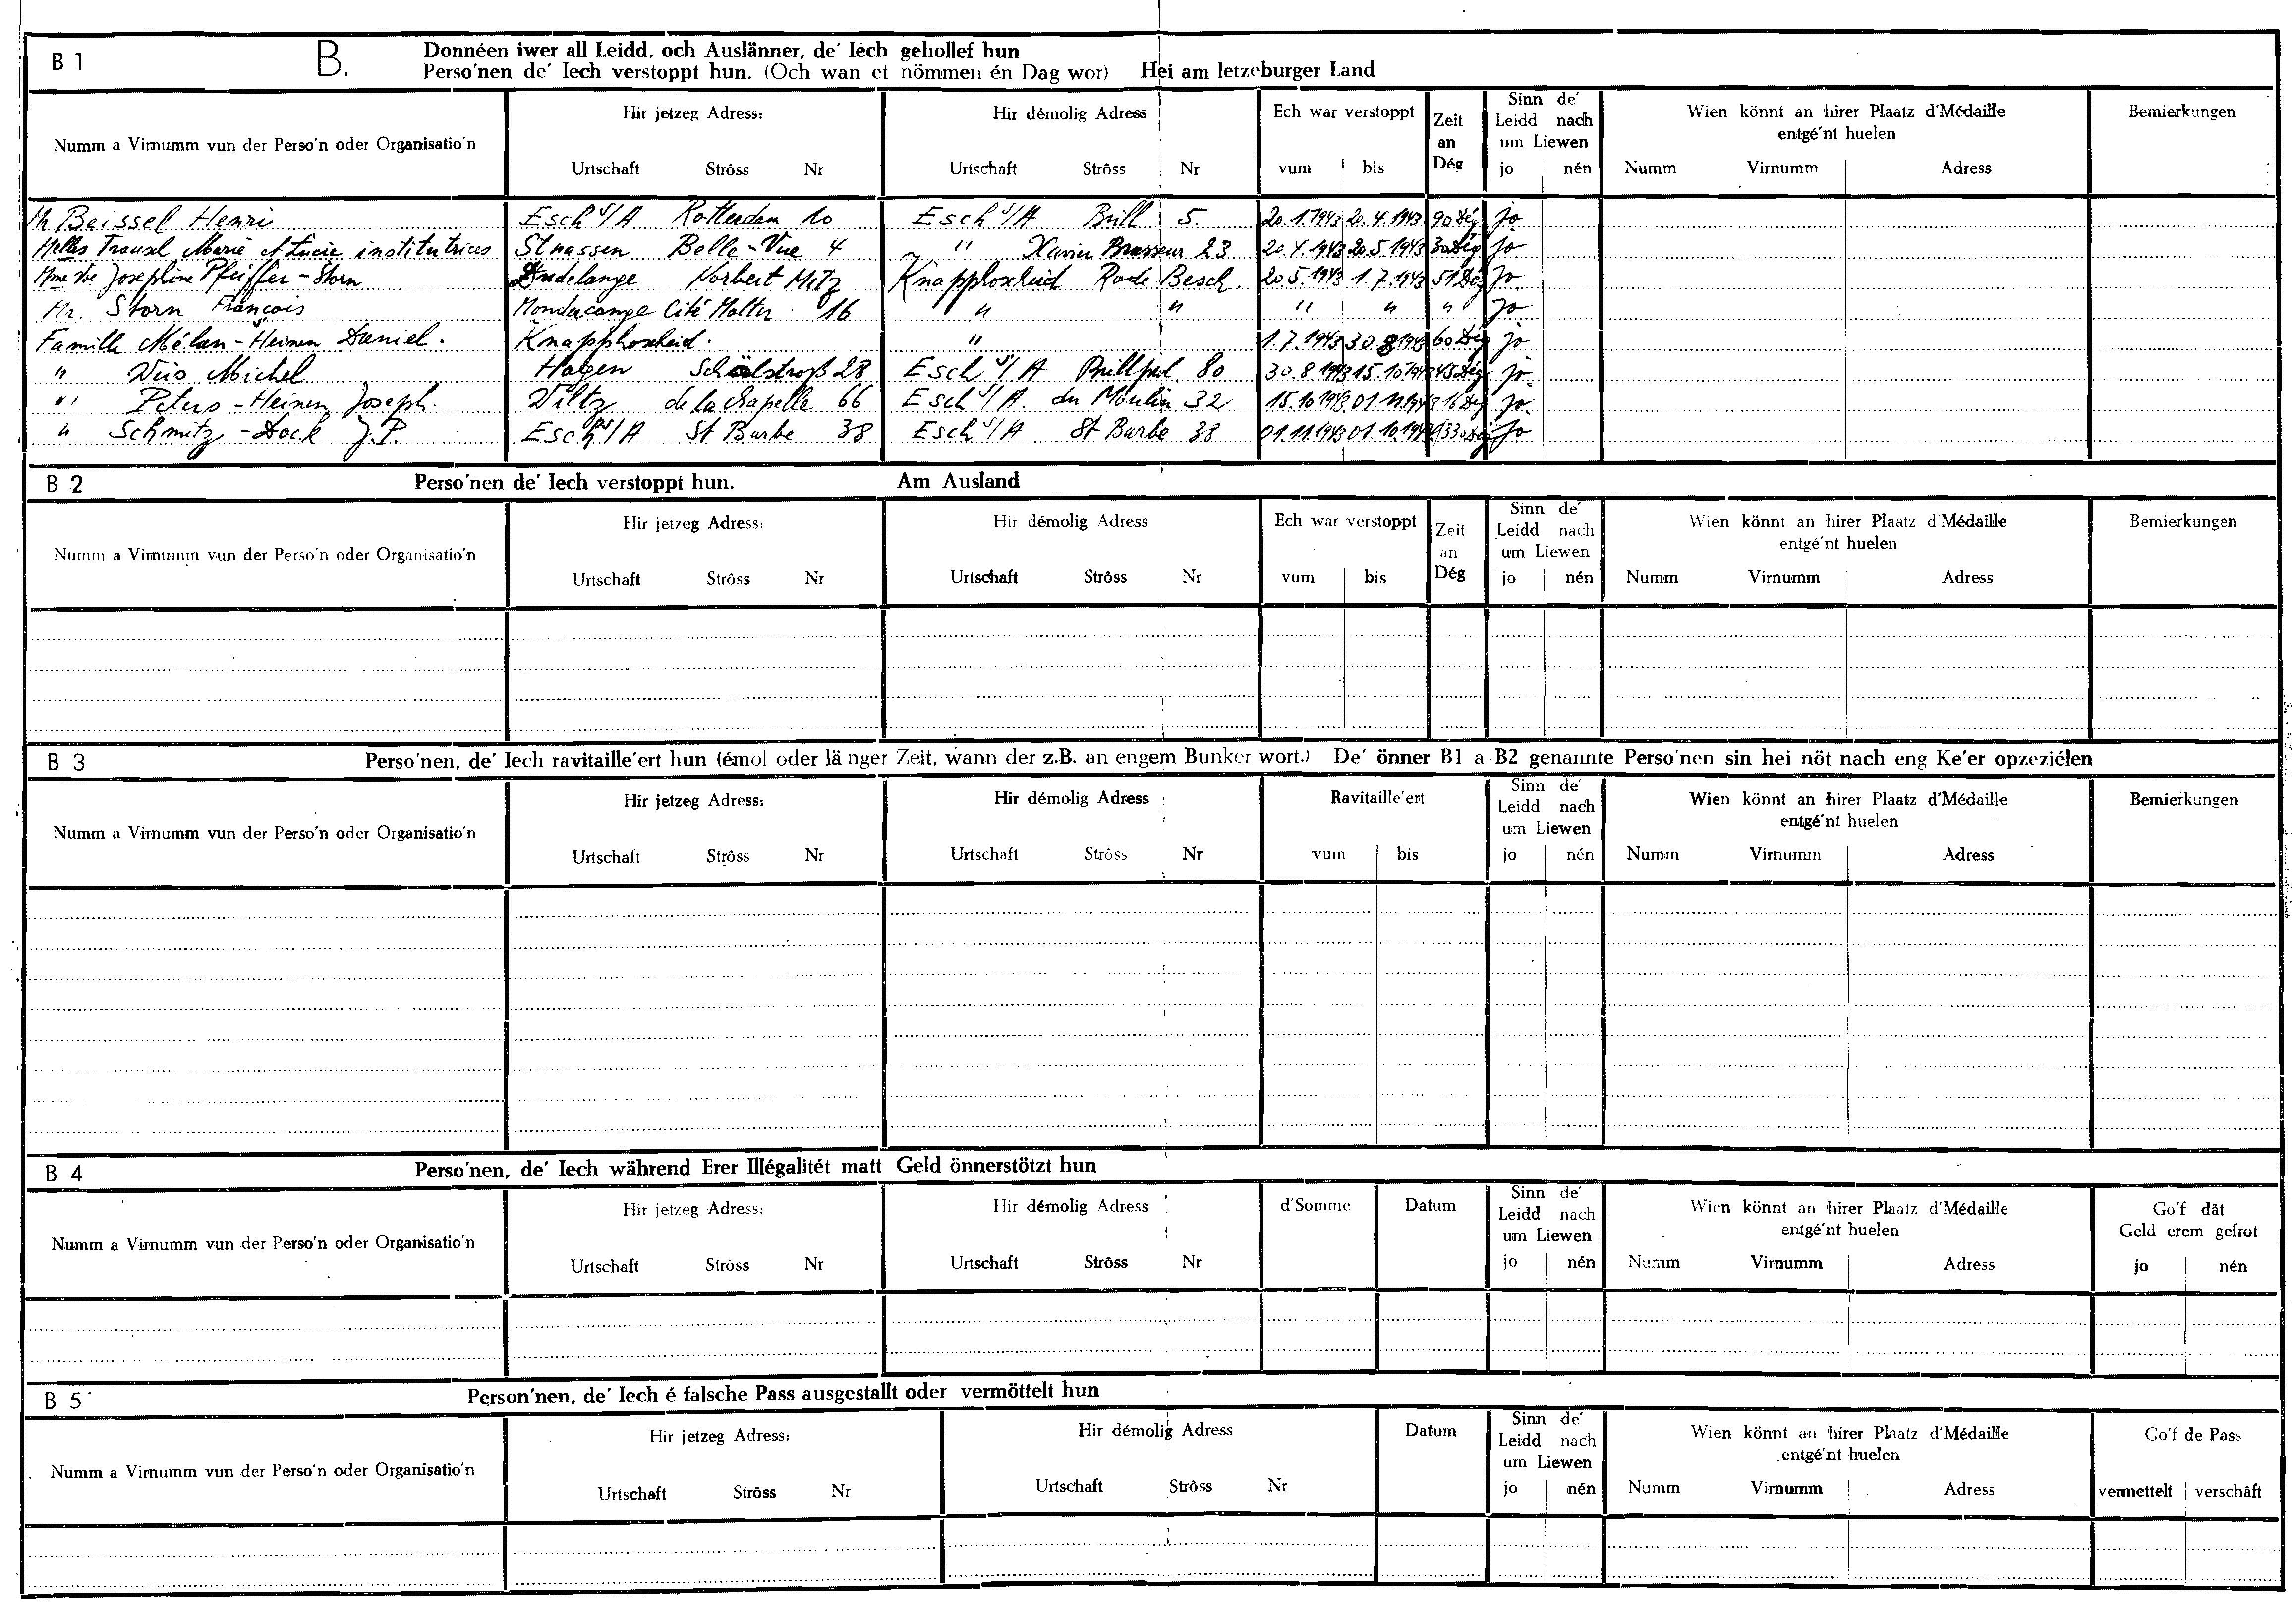 B 1 B. Donnéen iwer all Leidd, och Auslänner, de' Iech gehollef hun
Perso'nen de' Iech verstoppt hun. (Och wan et nömmen én Dag wor) Hei am letzeburger Land
Numm a Virnumm vun der Perso'n oder Organisatio'n
Hir jetzeg Adress:
Urtschaft Strôss Nr
Hir démolig Adress
Urtschaft Strôss Nr
Ech war verstoppt
vum bis
Zeit
an
Dég
Sinn de'
Leidd nach
um Liewen
jo nén
Wien könnt an hirer Plaatz d'Médaille
entgé'nt huelen
Numm Virnumm Adress
Bemierkungen
Beissel Henri Esch s/A Rotterdam 10 Esch s/A Brill 5. 20.1.1943 20.4.1943 90 Dég jo
Melles Trausch Marie et Lucie institutrices Strassen Belle-Vue 4 " Xavier Brasseur 23 20.4.1943 20.5.1943 30 Dég jo
Mme Ve Josephine Pfeiffer-Storn Dudelange Norbert Metz Knapphoscheid Rode Besch. 20.5.1943 1.7.1943 51 Dég jo.
Mr. Storn François Mondercange Cité Molter 16 " " " " " jo
Famille Mélan-Heinen Daniel. Knapphoscheid. " 1.7.1943 30.8.1943 60 Dég jo
" Weis Michel Hagen 28 Esch s/A 80 30.8.1943 15.10.1943 45 Dég jo.
" Peters-Heinen Joseph. Wiltz de la Chapelle 66 Esch s/A. du Moulin 32 15.10.1943 01.11.1943 16 Dég jo.
" Schmitz-Dock J.P. Esch s/A St Barbe 38 Esch s/A St Barbe 38 01.11.1943 01.10.1944 330 Dég jo
B 2 Perso'nen de' Iech verstoppt hun. Am Ausland
Numm a Virnumm vun der Perso'n oder Organisatio'n
Hir jetzeg Adress:
Urtschaft Strôss Nr
Hir démolig Adress
Urtschaft Strôss Nr
Ech war verstoppt
vum bis
Zeit
an
Dég
Sinn de'
Leidd nach
um Liewen
jo nén
Wien könnt an hirer Plaatz d'Médaille
entgé'nt huelen
Numm Virnumm Adress
Bemierkungen
B 3 Perso'nen, de' Iech ravitaille'ert hun (émol oder länger Zeit, wann der z.B. an engem Bunker wort.) De' önner B1 a B2 genannte Perso'nen sin hei nöt nach eng Ke'er opzeziélen
Numm a Virnumm vun der Perso'n oder Organisatio'n
Hir jetzeg Adress:
Urtschaft Strôss Nr
Hir démolig Adress
Urtschaft Strôss Nr
Ravitaille'ert
vum bis
Sinn de'
Leidd nach
um Liewen
jo nén
Wien könnt an hirer Plaatz d'Médaille
entgé'nt huelen
Numm Virnumm Adress
Bemierkungen
B 4 Perso'nen, de' Iech während Erer Illégalitét matt Geld önnerstötzt hun
Numm a Virnumm vun der Perso'n oder Organisatio'n
Hir jetzeg Adress:
Urtschaft Strôss Nr
Hir démolig Adress
Urtschaft Strôss Nr
d'Somme
Datum
Sinn de'
Leidd nach
um Liewen
jo nén
Wien könnt an hirer Plaatz d'Médaille
entgé'nt huelen
Numm Virnumm Adress
Go'f dât
Geld erem gefrot
jo nén
B 5 Person'nen, de' Iech é falsche Pass ausgestallt oder vermöttelt hun
Numm a Virnumm vun der Perso'n oder Organisatio'n
Hir jetzeg Adress:
Urtschaft Strôss Nr
Hir démolig Adress
Urtschaft Strôss Nr
Datum
Sinn de'
Leidd nach
um Liewen
jo nén
Wien könnt an hirer Plaatz d'Médaille
entgé'nt huelen
Numm Virnumm Adress
Go'f de Pass
vermettelt verschâft